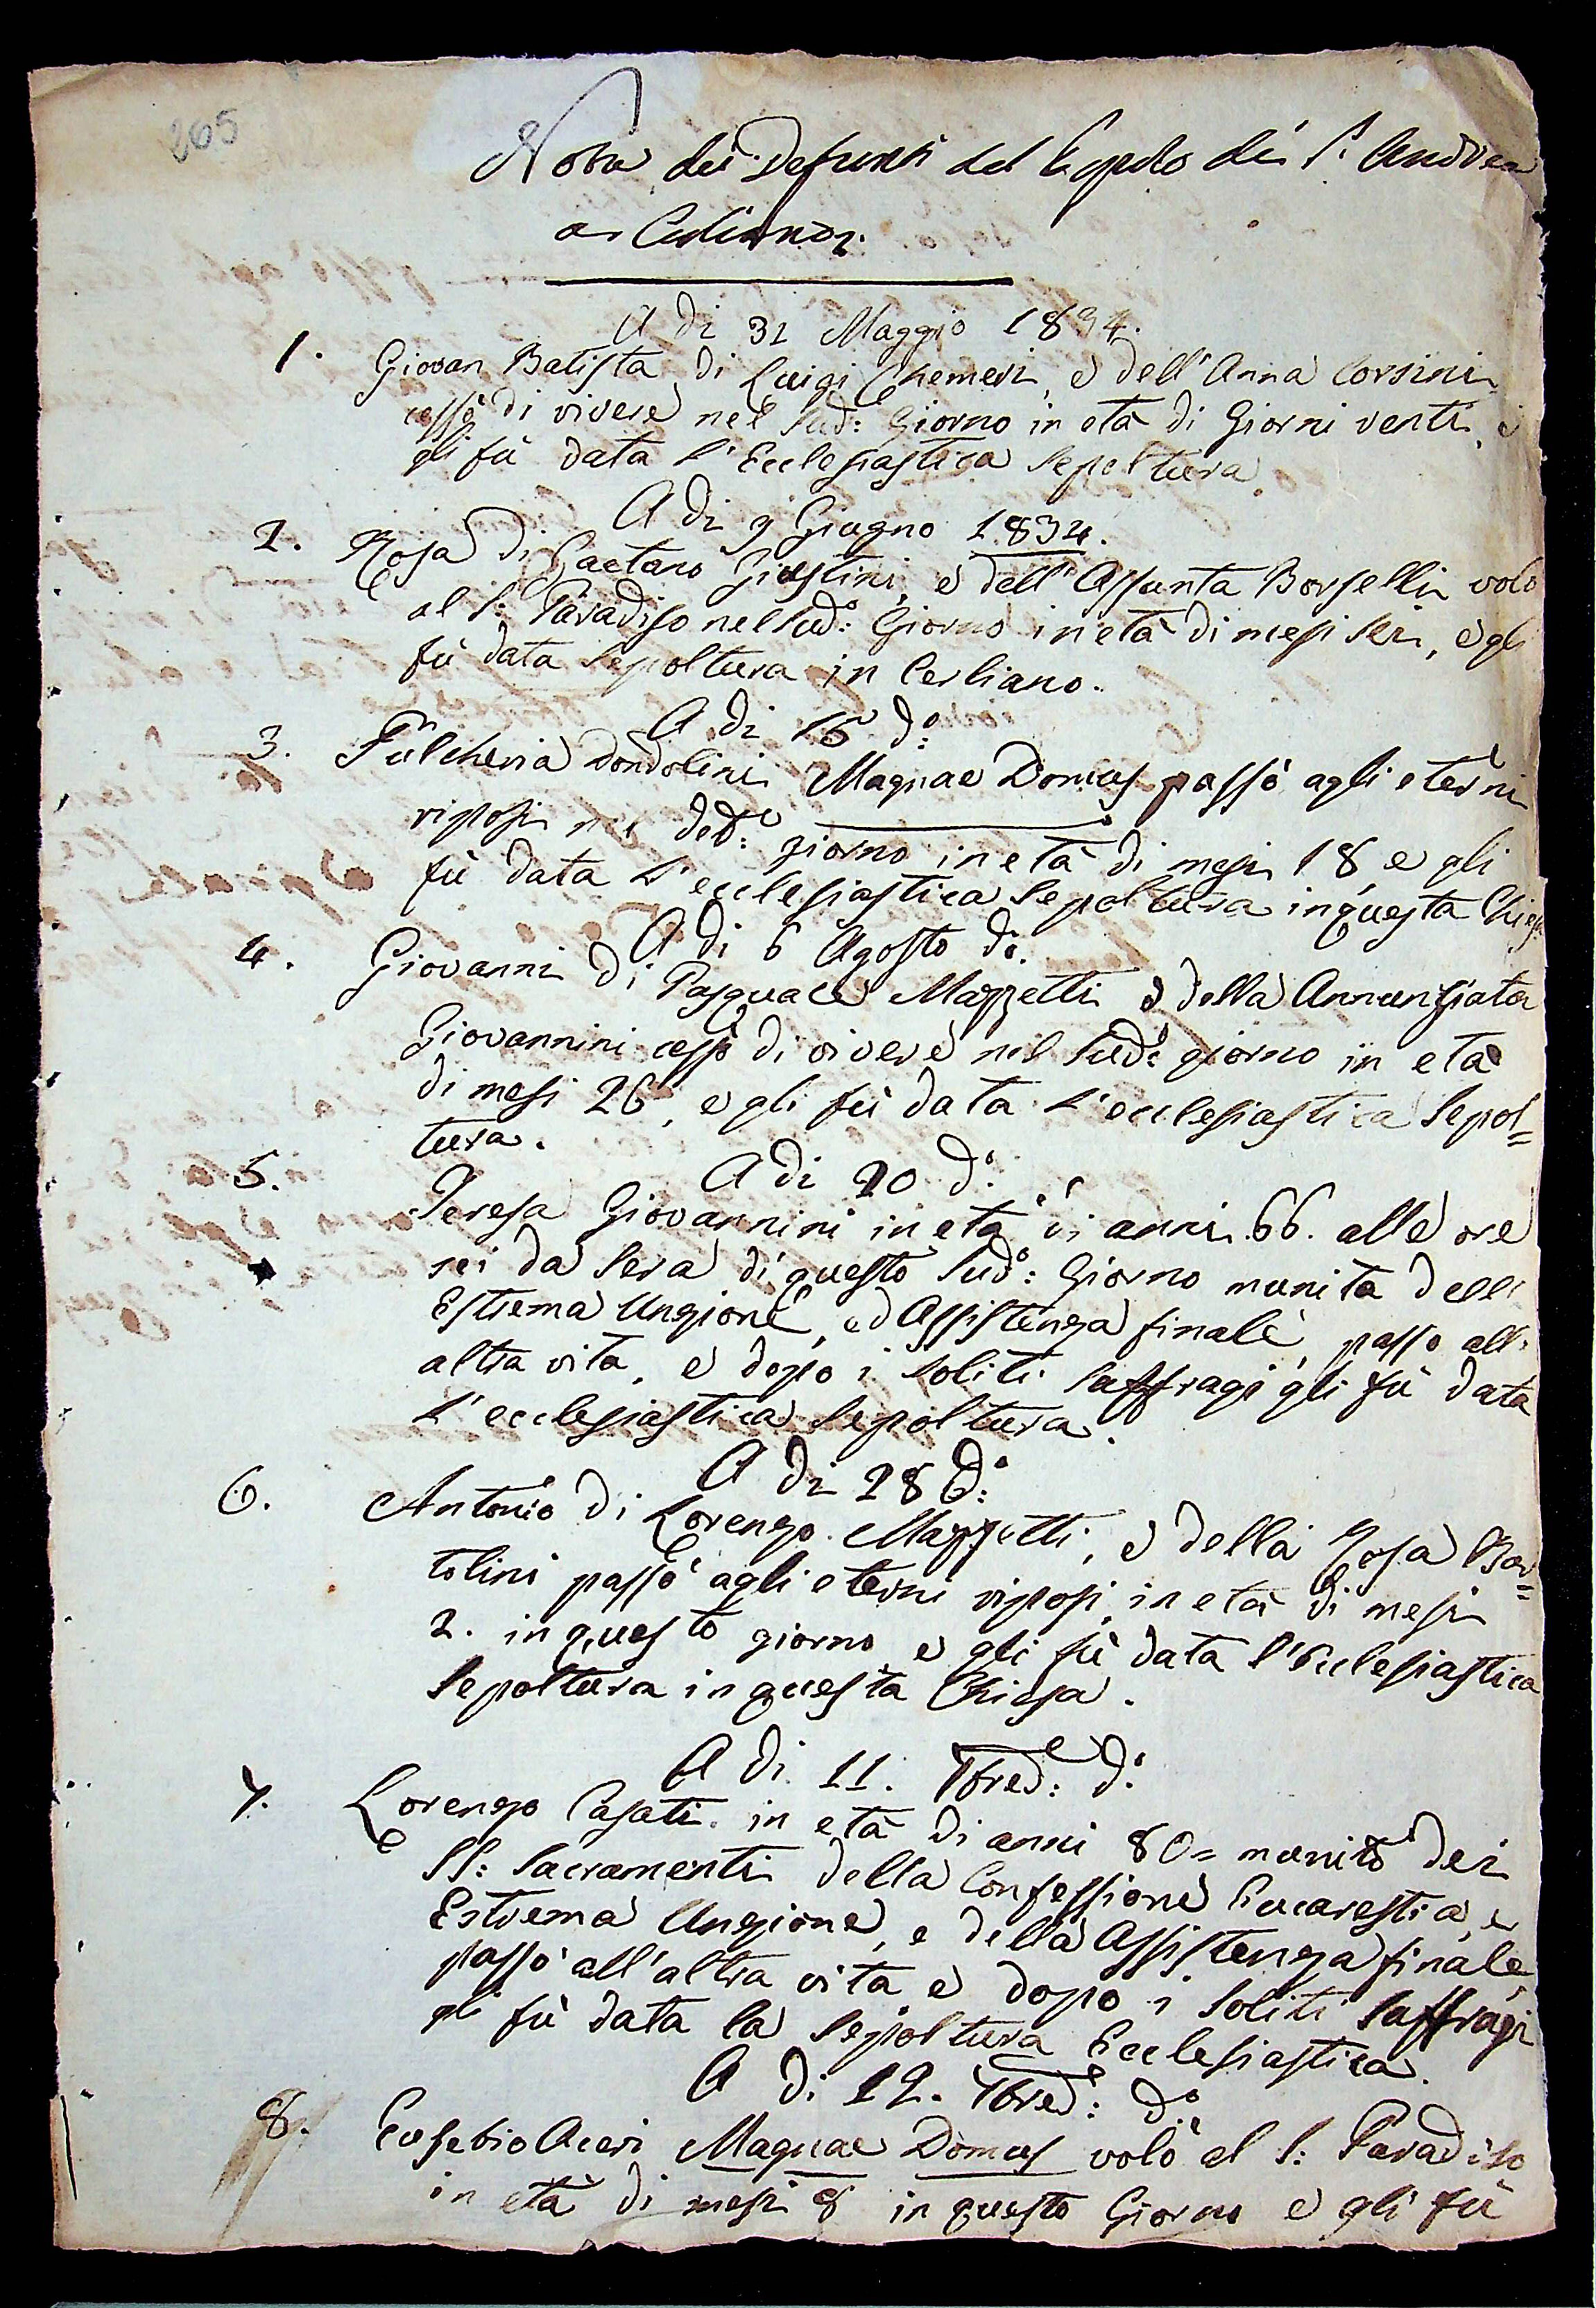 265
Nota dei Defunti del Popolo di S. Andrea
a Cerliano.
A di 31 Maggio 1834.
1. Giovan Batista di Luigi Chemeri, e dell'Anna Corsini
cessò di vivere nel Sud:° Giorno in età di Giorni venti, e
gli fù data l'Ecclesiastica Sepoltura.
A di 9 Giugno 1834.
2. Rosa di Gaetano Giustini, e dell'Assunta Borselli volò
al S: Paradiso nel Sud:° Giorno in età di mesi sei, e gli
fù data Sepoltura in Cerliano.
A di 15 d:°
3. Fulcheria Dondolini Magnae Domus passò agli eterni
riposi nel det:° giorno in età di mesi 18 e gli
fù data l'ecclesiastica Sepoltura in questa Chiesa
A di 6 Agosto d:°
4. Giovanni di Pasquale Mazzetti e della Annunziata
Giovannini cessò di vivere nel Sud:° giorno in età
di mesi 26, e gli fù data l'ecclesiastica Sepol=
tura.
A di 20 d:°
5. Teresa Giovannini in età di anni .66. alle ore
sei da Sera di questo Sud:° Giorno munita dell'
Estrema Unzione, ed Assistenza finale, passo all'
altra vita, e dopo i Soliti Saffragi gli fù data
l'ecclesiastica Sepoltura.
A di 28 d:°
6. Antonio di Lorenzo Mazzetti, e della Rosa Bar=
tolini passò agli eterni riposi in età di mesi
2. in questo giorno e gli fù data l'Ecclesiastica
Sepoltura in questa Chiesa.
A di 11. 7bre: d:°
7. Lorenzo Casati in età di anni 80= munito dei
SS: Sacramenti della Confessione Eucarestia, e
Estrema Unzione, e della Assistenza finale
passò all'altra vita e dopo i Soliti Saffragi
gli fù data la Sepoltura Ecclesiastica.
A di 12. 7bre: d:°
8. Eusebio Aceri Magnae Domus volò al S: Paradiso
in età di mesi 8 in questo Giorno e gli fù